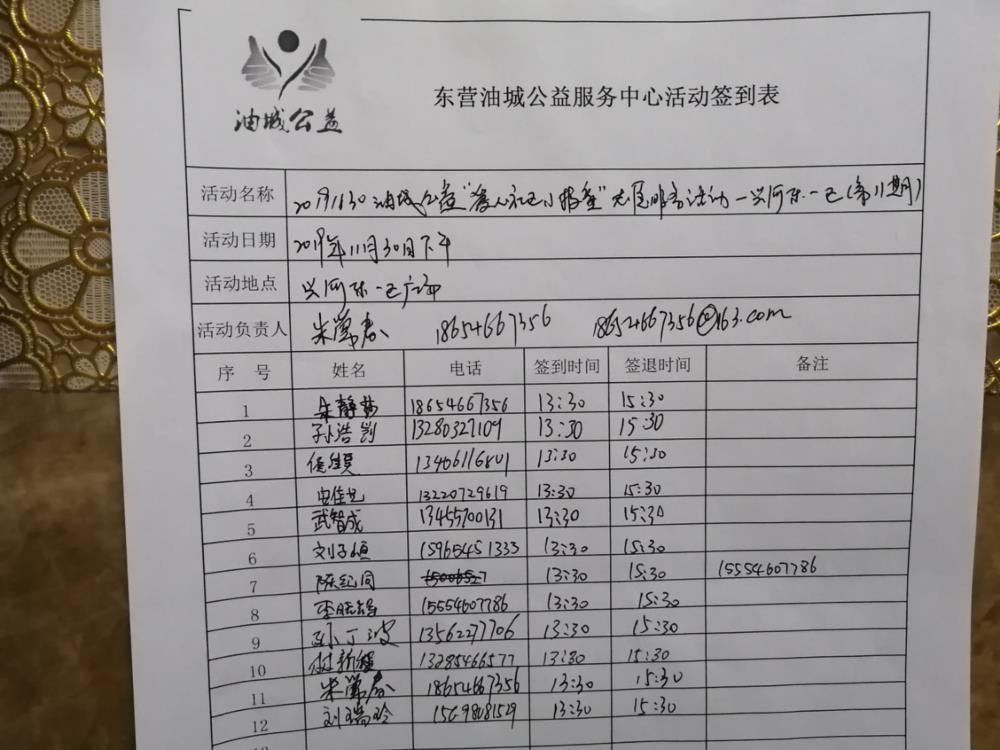 油城公益
东营油城公益服务中心活动签到表
活动名称 20191130油城公益"
志愿服务活动—兴河东一区(第11期)
活动日期 2019年11月30日下午
活动地点 兴河东一区广场
活动负责人 朱常春 18654667356 18654667356@163.com
序 号 姓名 电话 签到时间 签退时间 备注
1 朱静茹 18654667356 13:30 15:30
2 孙浩 13280327109 13:30 15:30
3 13406116801 13:30 15:30
4 13220729619 13:30 15:30
5 武智成 13455700131 13:30 15:30
6 刘子恒 15965451333 13:30 15:30
7 陈纪同 13:30 15:30 15554607786
8 15554607786 13:30 15:30
9 孙丁波 13562277706 13:30 15:30
10 13285466577 13:30 15:30
11 朱常春 18654667356 13:30 15:30
12 刘瑞玲 15698081529 13:30 15:30